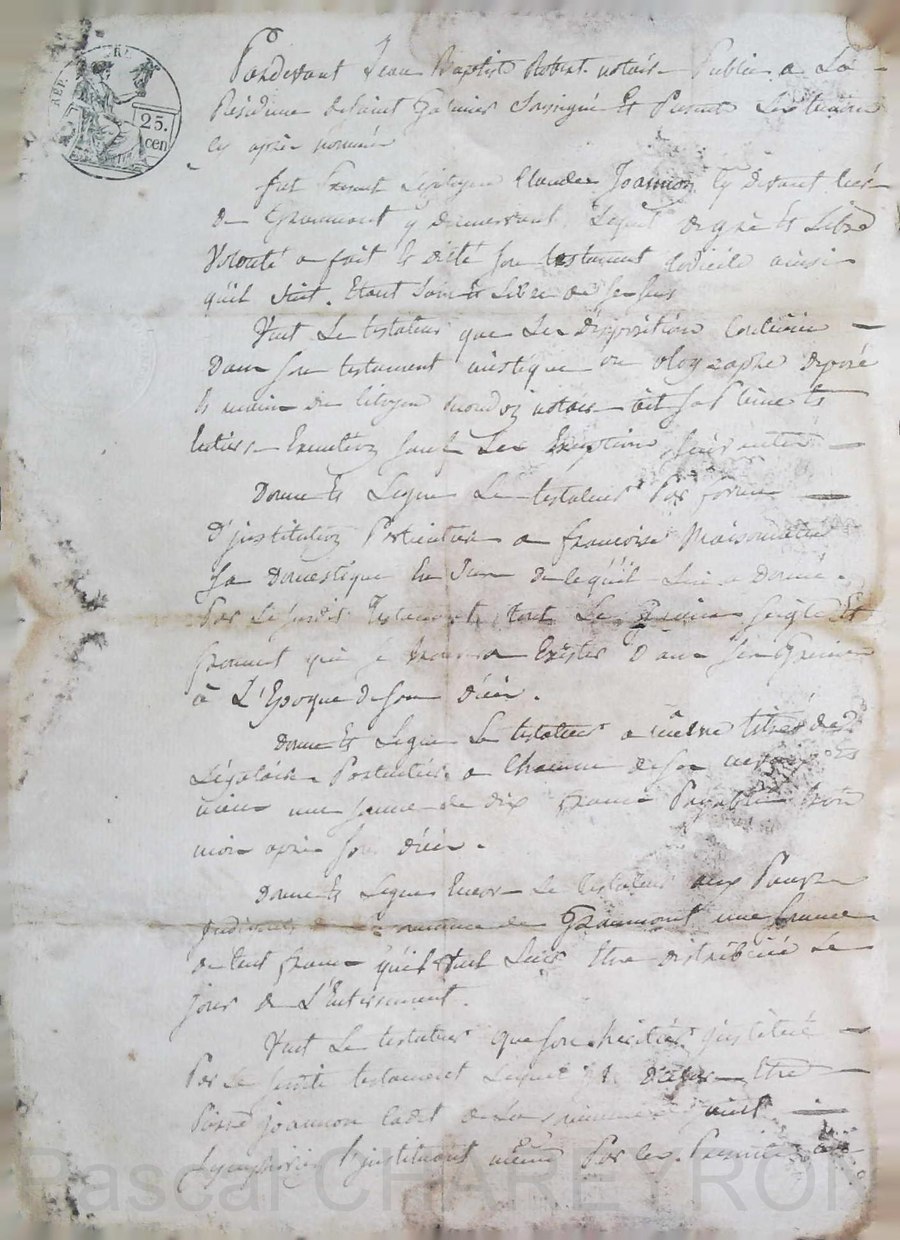 RÉP. FRA.
25.
cen
Pardevant Jean Baptiste Robert notair Public a La
Résidence de saint Galmier soussigné Et Present Les temoins
cy après nommés
fut Present Le citoyen Claude Joannon cy devant curé
de Grammont y demeurant Lequel de gré Et Libre
Volonté a fait Et dicté son testament codicile ainsi
qu'il suit. Etant sain Et Libre de ses sens
Veut Le testateur que Les disposition Contenue
Dans son testament mistique ou olographe déposé
Es main du Citoyen notair ait sa Pleine Et
Entiere Execution sauf Les Exeption suivantes
Donne Et Legue Le testateur Par forme
D'institution Particuliere a francoise Maisonnette
sa Domestique En sus de ce qu'il Lui a Donné
Par Le susdit Testament tout Le grain seigle Et
froment qui se trouvera Exister Dans son Grenier
à L'Epoque de son décès.
Donne Et Legue Le testateur a même titre de
Légataire Particulier a Chacun de ses neveux Et
niece une somme de dix franc Payable trois
mois après son décès.
Donne Et Legue Encore Le testateur aux Pauvre
de La commune de Grammont une somme
de Cent franc qu'il veut Leur Etre distribuée Le
jour de L'Enterrement.
Veut Le testateur que son héritier institué
Par Le susdit testament Lequel Etre
Pierre Joannon Cadet de La commune saint
Symphorien L'instituant même Par les Presente
Pascal CHAREYRON